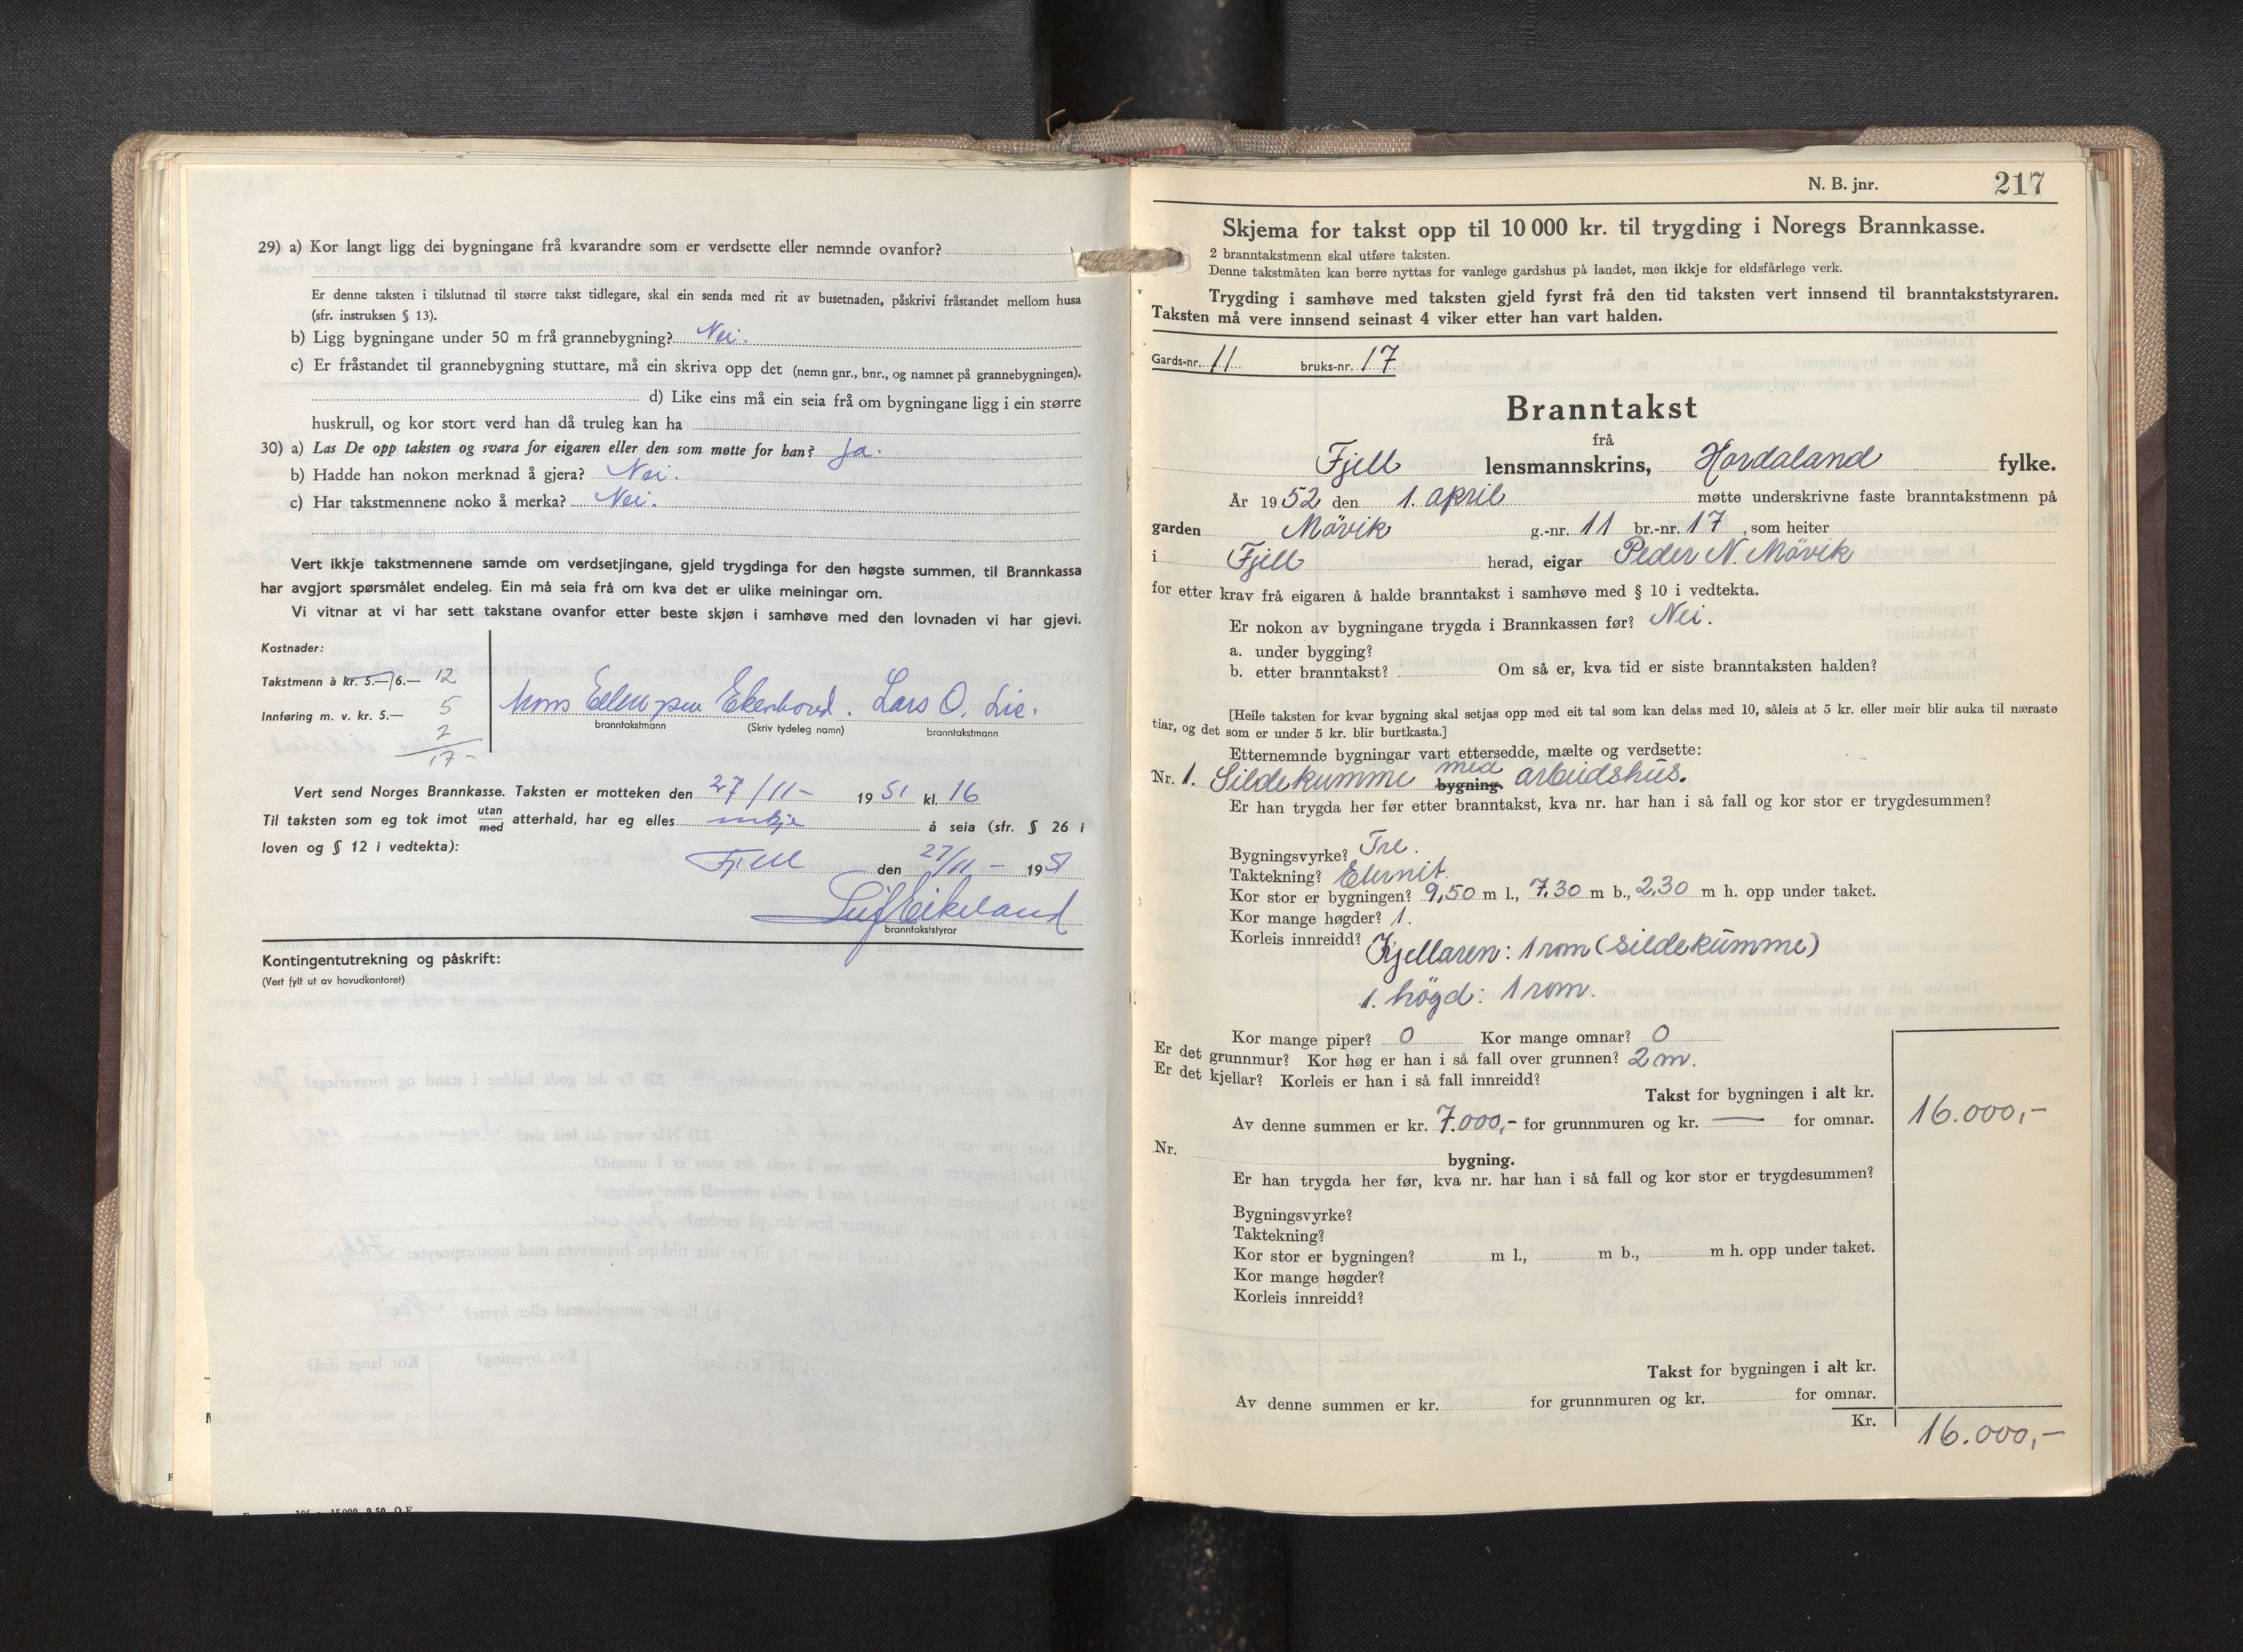 29) a) Kor langt ligg dei bygningane frå kvarandre som er verdsette eller nemnde ovanfor?
Er denne taksten i tilslutnad til større takst tidlegare, skal ein senda med rit av busetnaden, påskrivi fråstandet mellom husa
(sfr. instruksen § 13).
b) Ligg bygningane under 50 m frå grannebygning? Nei.
c) Er fråstandet til grannebygning stuttare, må ein skriva opp det (nemn gnr., bnr., og namnet på grannebygningen).
d) Like eins må ein seia frå om bygningane ligg i ein større
huskrull, og kor stort verd han då truleg kan ha
30) a) Las De opp taksten og svara for eigaren eller den som møtte for han? Ja.
b) Hadde han nokon merknad å gjera? Nei.
c) Har takstmennene noko å merka? Nei.
Vert ikkje takstmennene samde om verdsetjingane, gjeld trygdinga for den høgste summen, til Brannkassa
har avgjort spørsmålet endeleg. Ein må seia frå om kva det er ulike meiningar om.
Vi vitnar at vi har sett takstane ovanfor etter beste skjøn i samhøve med den lovnaden vi har gjevi.
Kostnader:
Takstmenn à kr. 5.—/6.— 12
Innføring m. v. kr. 5.— 5
2
17-
Mons Ekerhovd. Lars O. Lie.
branntakstmann (Skriv tydeleg namn) branntakstmann
Vert send Norges Brannkasse. Taksten er motteken den 27/11- 1951 kl. 16
Til taksten som eg tok imot utan/med atterhald, har eg elles inkje å seia (sfr. § 26 i
loven og § 12 i vedtekta):
Fjell den 27/11- 1951
Leif Eikeland
branntakststyrar
Kontingentutrekning og påskrift:
(Vert fylt ut av hovudkontoret)
N. B. jnr. 217
Skjema for takst opp til 10 000 kr. til trygding i Noregs Brannkasse.
2 branntakstmenn skal utføre taksten.
Denne takstmåten kan berre nyttas for vanlege gardshus på landet, men ikkje for eldsfårlege verk.
Trygding i samhøve med taksten gjeld fyrst frå den tid taksten vert innsend til branntakststyraren.
Taksten må vere innsend seinast 4 viker etter han vart halden.
Gards-nr. 11 bruks-nr. 17
Branntakst
frå
Fjell lensmannskrins, Hordaland fylke.
År 1952 den 1. april møtte underskrivne faste branntakstmenn på
garden Mövik g.-nr. 11 br.-nr. 17, som heiter
i Fjell herad, eigar Peder N. Mövik
for etter krav frå eigaren å halde branntakst i samhøve med § 10 i vedtekta.
Er nokon av bygningane trygda i Brannkassen før? Nei.
a. under bygging?
b. etter branntakst? Om så er, kva tid er siste branntaksten halden?
[Heile taksten for kvar bygning skal setjas opp med eit tal som kan delas med 10, såleis at 5 kr. eller meir blir auka til næraste
tiar, og det som er under 5 kr. blir burtkasta.]
Etternemnde bygningar vart ettersedde, mælte og verdsette:
Nr. 1. Sildekumme med bygning. arbeidshus.
Er han trygda her før etter branntakst, kva nr. har han i så fall og kor stor er trygdesummen?
Bygningsvyrke? Tre.
Taktekning? Eternit.
Kor stor er bygningen? 9,50 m l., 7.30 m b., 2,30 m h. opp under taket.
Kor mange høgder? 1.
Korleis innreidd? Kjellaren: 1 rom (sildekumme)
1. högd: 1 rom.
Kor mange piper? 0 Kor mange omnar? 0
Er det grunnmur? Kor høg er han i så fall over grunnen? 2 m.
Er det kjellar? Korleis er han i så fall innreidd?
Takst for bygningen i alt kr. 16.000,-
Av denne summen er kr. 7.000,- for grunnmuren og kr. — for omnar.
Nr. bygning.
Er han trygda her før, kva nr. har han i så fall og kor stor er trygdesummen?
Bygningsvyrke?
Taktekning?
Kor stor er bygningen? m l., m b., m h. opp under taket.
Kor mange høgder?
Korleis innreidd?
Takst for bygningen i alt kr.
Av denne summen er kr. for grunnmuren og kr. for omnar.
Kr. 16.000,-